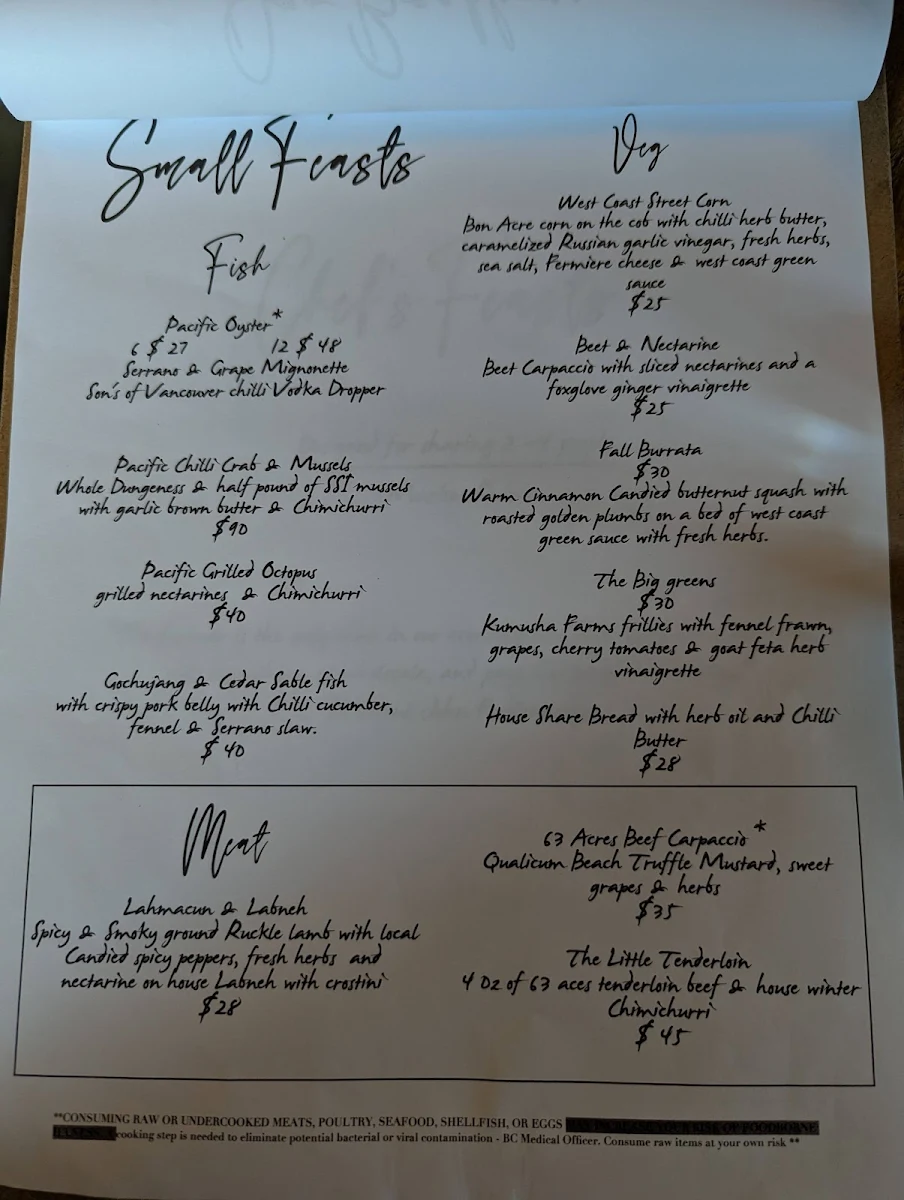 Small Feasts
Fish
Pacific Oyster*
6 $27 12 $48
Serrano & Grape Mignonette
Son's of Vancouver chilli Vodka Dropper
Pacific Chilli Crab & Mussels
Whole Dungeness & half pound of SSI mussels
with garlic brown butter & Chimichurri
$90
Pacific Grilled Octopus
grilled nectarines & Chimichurri
$40
Gochujang & Cedar Sable fish
with crispy pork belly with Chilli cucumber,
fennel & Serrano slaw.
$40
Veg
West Coast Street Corn
Bon Acre corn on the cob with chilli herb butter,
caramelized Russian garlic vinegar, fresh herbs,
sea salt, Fermiere cheese & west coast green
sauce
$25
Beet & Nectarine
Beet Carpaccio with sliced nectarines and a
foxglove ginger vinaigrette
$25
Fall Burrata
$30
Warm Cinnamon Candied butternut squash with
roasted golden plumbs on a bed of west coast
green sauce with fresh herbs.
The Big greens
$30
Kumusha Farms frillies with fennel frawn,
grapes, cherry tomatoes & goat feta herb
vinaigrette
House Share Bread with herb oil and Chilli
Butter
$28
Meat
Lahmacun & Labneh
Spicy & Smoky ground Ruckle lamb with local
Candied spicy peppers, fresh herbs and
nectarine on house Labneh with crostini
$28
63 Acres Beef Carpaccio*
Qualicum Beach Truffle Mustard, sweet
grapes & herbs
$35
The Little Tenderloin
4 Oz of 63 aces tenderloin beef & house winter
Chimichurri
$45
**CONSUMING RAW OR UNDERCOOKED MEATS, POULTRY, SEAFOOD, SHELLFISH, OR EGGS MAY INCREASE YOUR RISK OF FOODBORNE
ILLNESS. A cooking step is needed to eliminate potential bacterial or viral contamination - BC Medical Officer. Consume raw items at your own risk **